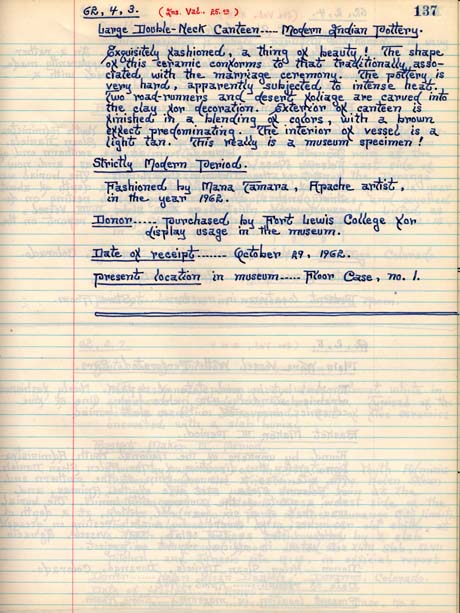 62, 4, 3. (Ins. Val. 25.00) 137
Large Double-Neck Canteen---- Modern Indian Pottery.
Exquisitely fashioned, a thing of beauty! The shape
of this ceramic conforms to that traditionally asso-
ciated with the marriage ceremony. The pottery is
very hard, apparently subjected to intense heat.
Two road-runners and desert foliage are carved into
the clay for decoration. Exterior of canteen is
finished in a blending of colors, with a brown
effect predominating. The interior of vessel is a
light tan. This really is a museum specimen!
Strictly Modern Period.
Fashioned by Mana Tamara, Apache artist,
in the year 1962.
Donor----- purchased by Fort Lewis College for
display usage in the museum.
Date of receipt------- October 29, 1962.
present location in museum----- Floor Case, no. 1.